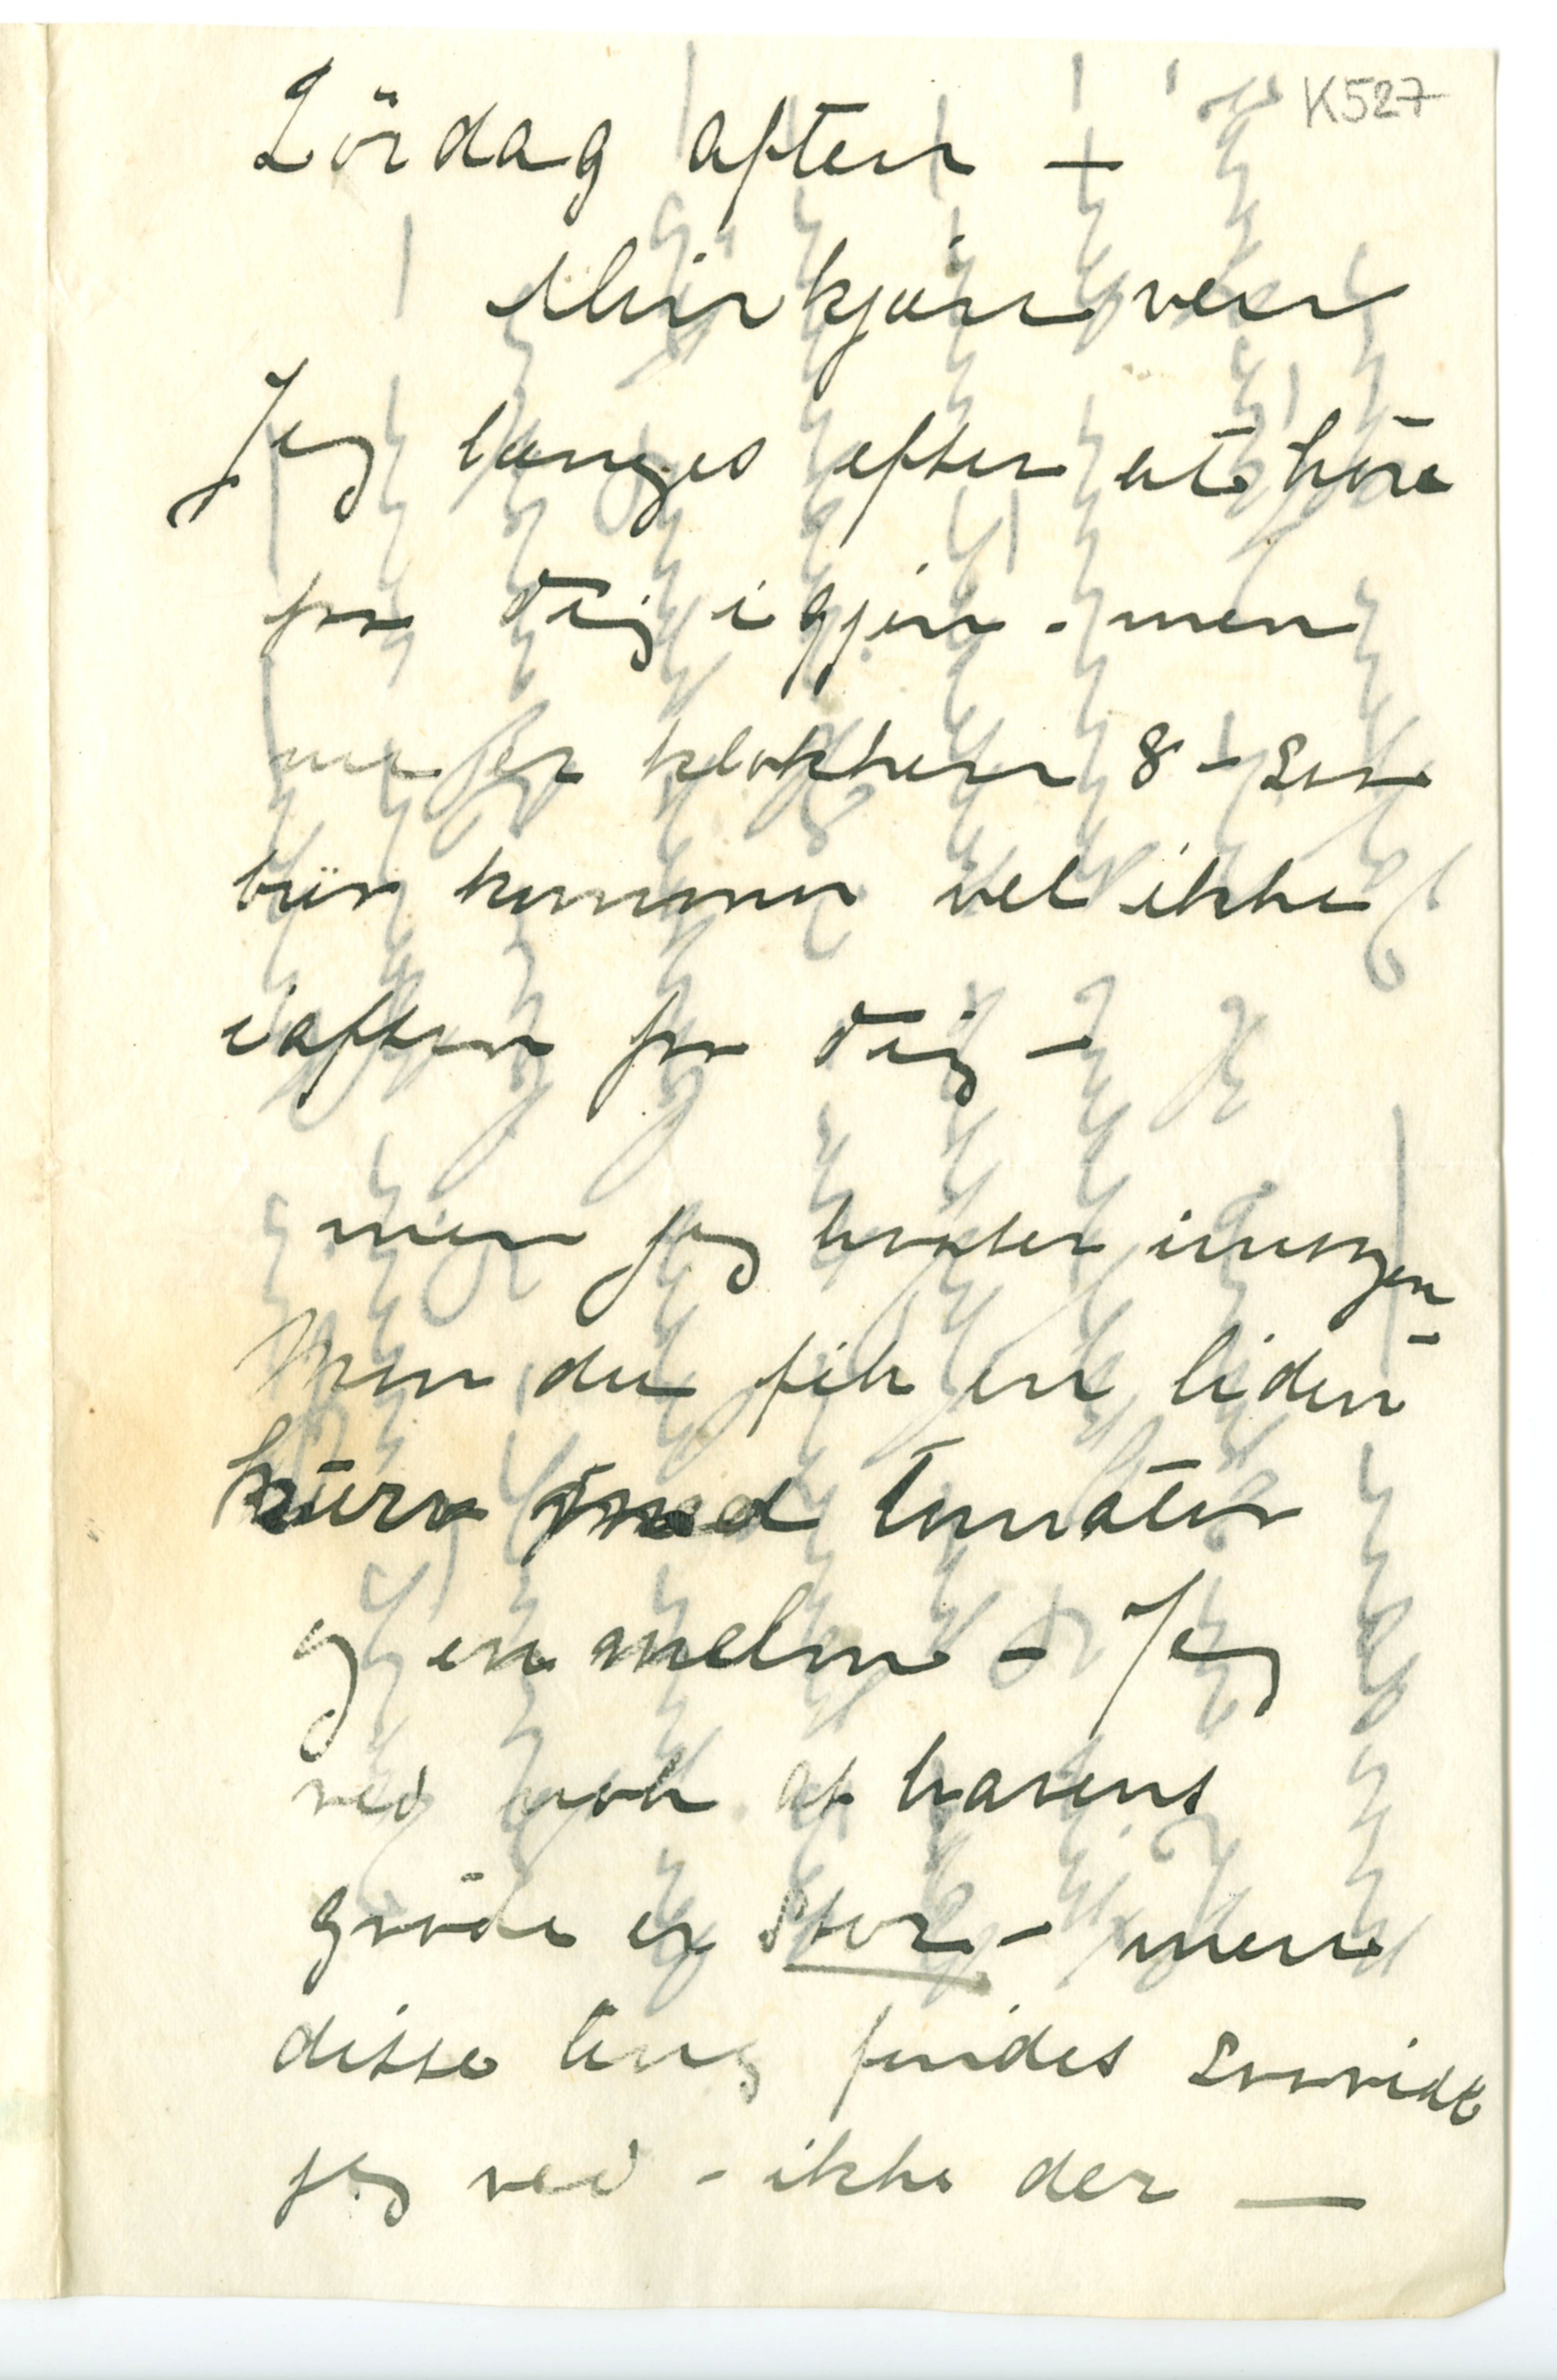 K527
Lördag aften –
Min kjære ven
Jeg længes efter at höre
fra Dig igjen - men
nu er klokken 8 – Saa
bür kommer vel ikke
iaften fra Dig –
men jeg venter imorgen –
Men du fik en liden
kurv med Tomater
og en melon – Jeg
ved nok at havens
gröde er stor – men
disse ting findes saavidt
jeg ved – ikke der —